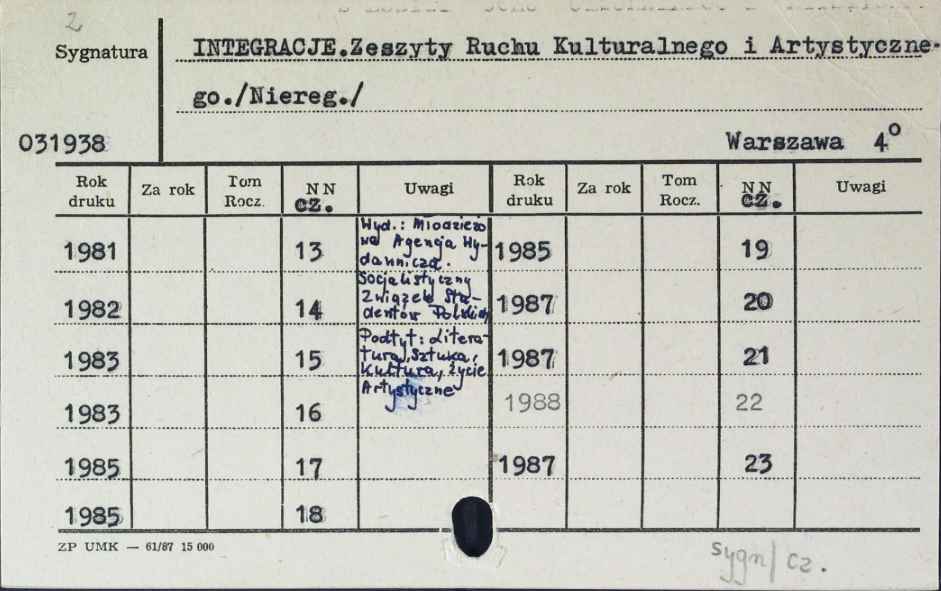 2
Sygnatura
INTEGRACJE.Zeszyty Ruchu Kulturalnego i Artystyczne-
go./Niereg./
031938
Warszawa 4°
Rok druku Za rok Tom Rocz. NN cz. Uwagi Rok druku Za rok Tom Rocz. NN cz. Uwagi
1981 13 1985 19
1982 14 1987 20
1983 15 1987 21
1983 16 1988 22
1985 17 1987 23
1985 18
Wyd.: Młodzieżo
wa Agencja Wy-
dawnicza.
Socjalistyczny
Związek Stu-
dentów Polskich
Podtyt: Litera-
tura, Sztuka,
Kultura, Życie
Artystyczne
ZP UMK — 61/87 15 000
sygn/ cz.